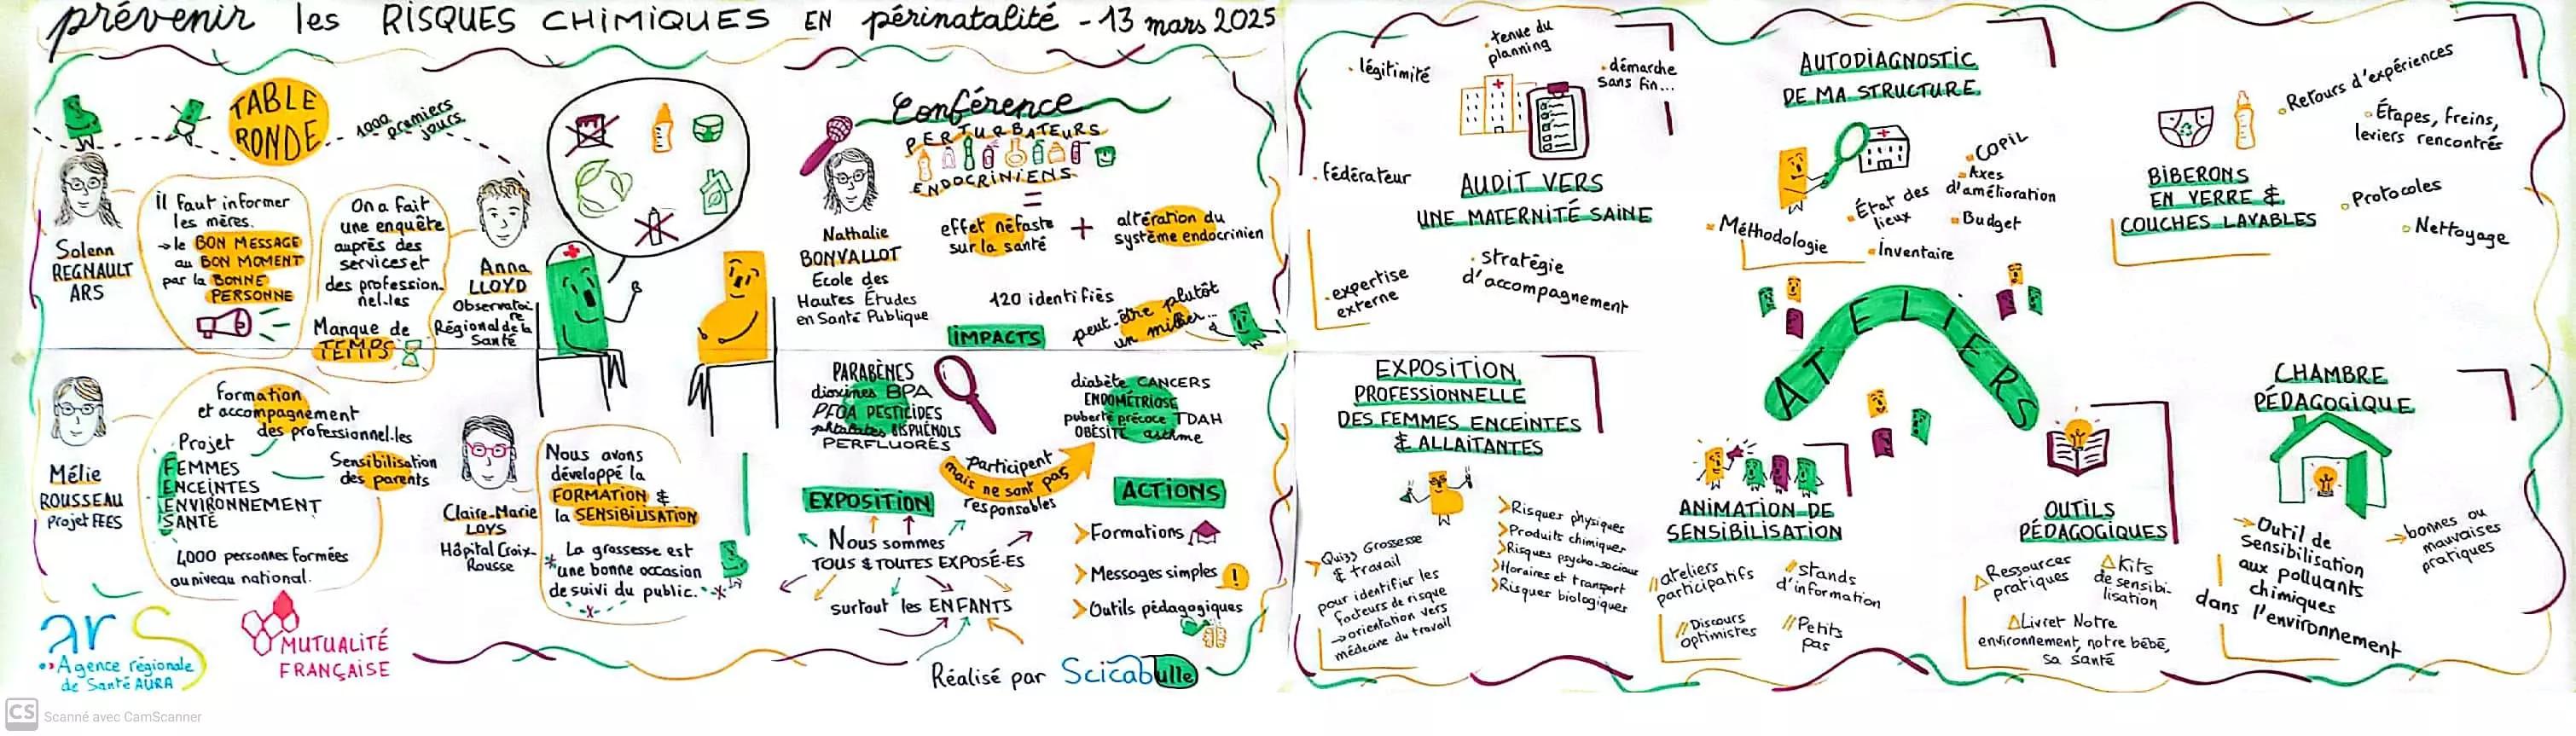 prévenir les RISQUES CHIMIQUES EN périnatalité - 13 mars 2025
TABLE
RONDE
1000 premiers
jours
Solenn
REGNAULT
ARS
il faut informer
les mères.
→ le BON MESSAGE
au BON MOMENT
par la BONNE
PERSONNE
On a fait
une enquête
auprès des
services et
des profession-
nel.les
Manque de
TEMPS
Anna
LLOYD
Observatoi
re
Régional de la
Santé
Mélie
ROUSSEAU
Projet FEES
Formation
et accompagnement
des professionnel.les
Projet
FEMMES
ENCEINTES
ENVIRONNEMENT
SANTÉ
Sensibilisation
des parents
4000 personnes formées
au niveau national.
Claire-Marie
LOYS
Hôpital Croix-
Rousse
Nous avons
développé la
FORMATION &
la SENSIBILISATION
* La grossesse est
une bonne occasion
de suivi du public.
ars
Agence régionale
de Santé AURA
MUTUALITÉ
FRANÇAISE
Conférence
PERTURBATEURS
ENDOCRINIENS
=
effet néfaste
sur la santé
+
altération du
système endocrinien
Nathalie
BONVALLOT
Ecole des
Hautes Études
en Santé Publique
120 identifiés
peut-être plutôt
un millier...
IMPACTS
PARABÈNES
dioxines BPA
PFOA PESTICIDES
phtalates BISPHÉNOLS
PERFLUORÉS
diabète CANCERS
ENDOMÉTRIOSE
puberté précoce TDAH
OBÉSITÉ asthme
Participent
mais ne sont pas
responsables
EXPOSITION
Nous sommes
TOUS & TOUTES EXPOSÉ-ES
surtout les ENFANTS
ACTIONS
> Formations
> Messages simples !
> Outils pédagogiques
Réalisé par Scicabulle
. légitimité
. tenue du
planning
. démarche
sans fin...
. fédérateur
AUDIT VERS
UNE MATERNITÉ SAINE
. expertise
externe
. stratégie
d'accompagnement
AUTODIAGNOSTIC
DE MA STRUCTURE
Méthodologie
État des
lieux
COPIL
Axes
d'amélioration
Budget
Inventaire
BIBERONS
EN VERRE &
COUCHES LAVABLES
Retours d'expériences
Étapes, freins,
leviers rencontrés
Protocoles
Nettoyage
ATELIERS
EXPOSITION
PROFESSIONNELLE
DES FEMMES ENCEINTES
& ALLAITANTES
> Quizz Grossesse
& travail
pour identifier les
facteurs de risque
→ orientation vers
médecine du travail
> Risques physiques
> Produits chimiques
> Risques psycho-sociaux
> Horaires et transport
> Risques biologiques
ANIMATION DE
SENSIBILISATION
// ateliers
participatifs
// stands
d'information
// Discours
optimistes
// Petits
pas
OUTILS
PÉDAGOGIQUES
△ Ressources
pratiques
△ Kits
de sensibi-
lisation
△ Livret Notre
environnement, notre bébé,
sa santé
CHAMBRE
PÉDAGOGIQUE
→ Outil de
Sensibilisation
aux polluants
chimiques
dans l'environnement
→ bonnes ou
mauvaises
pratiques
CS Scanné avec CamScanner